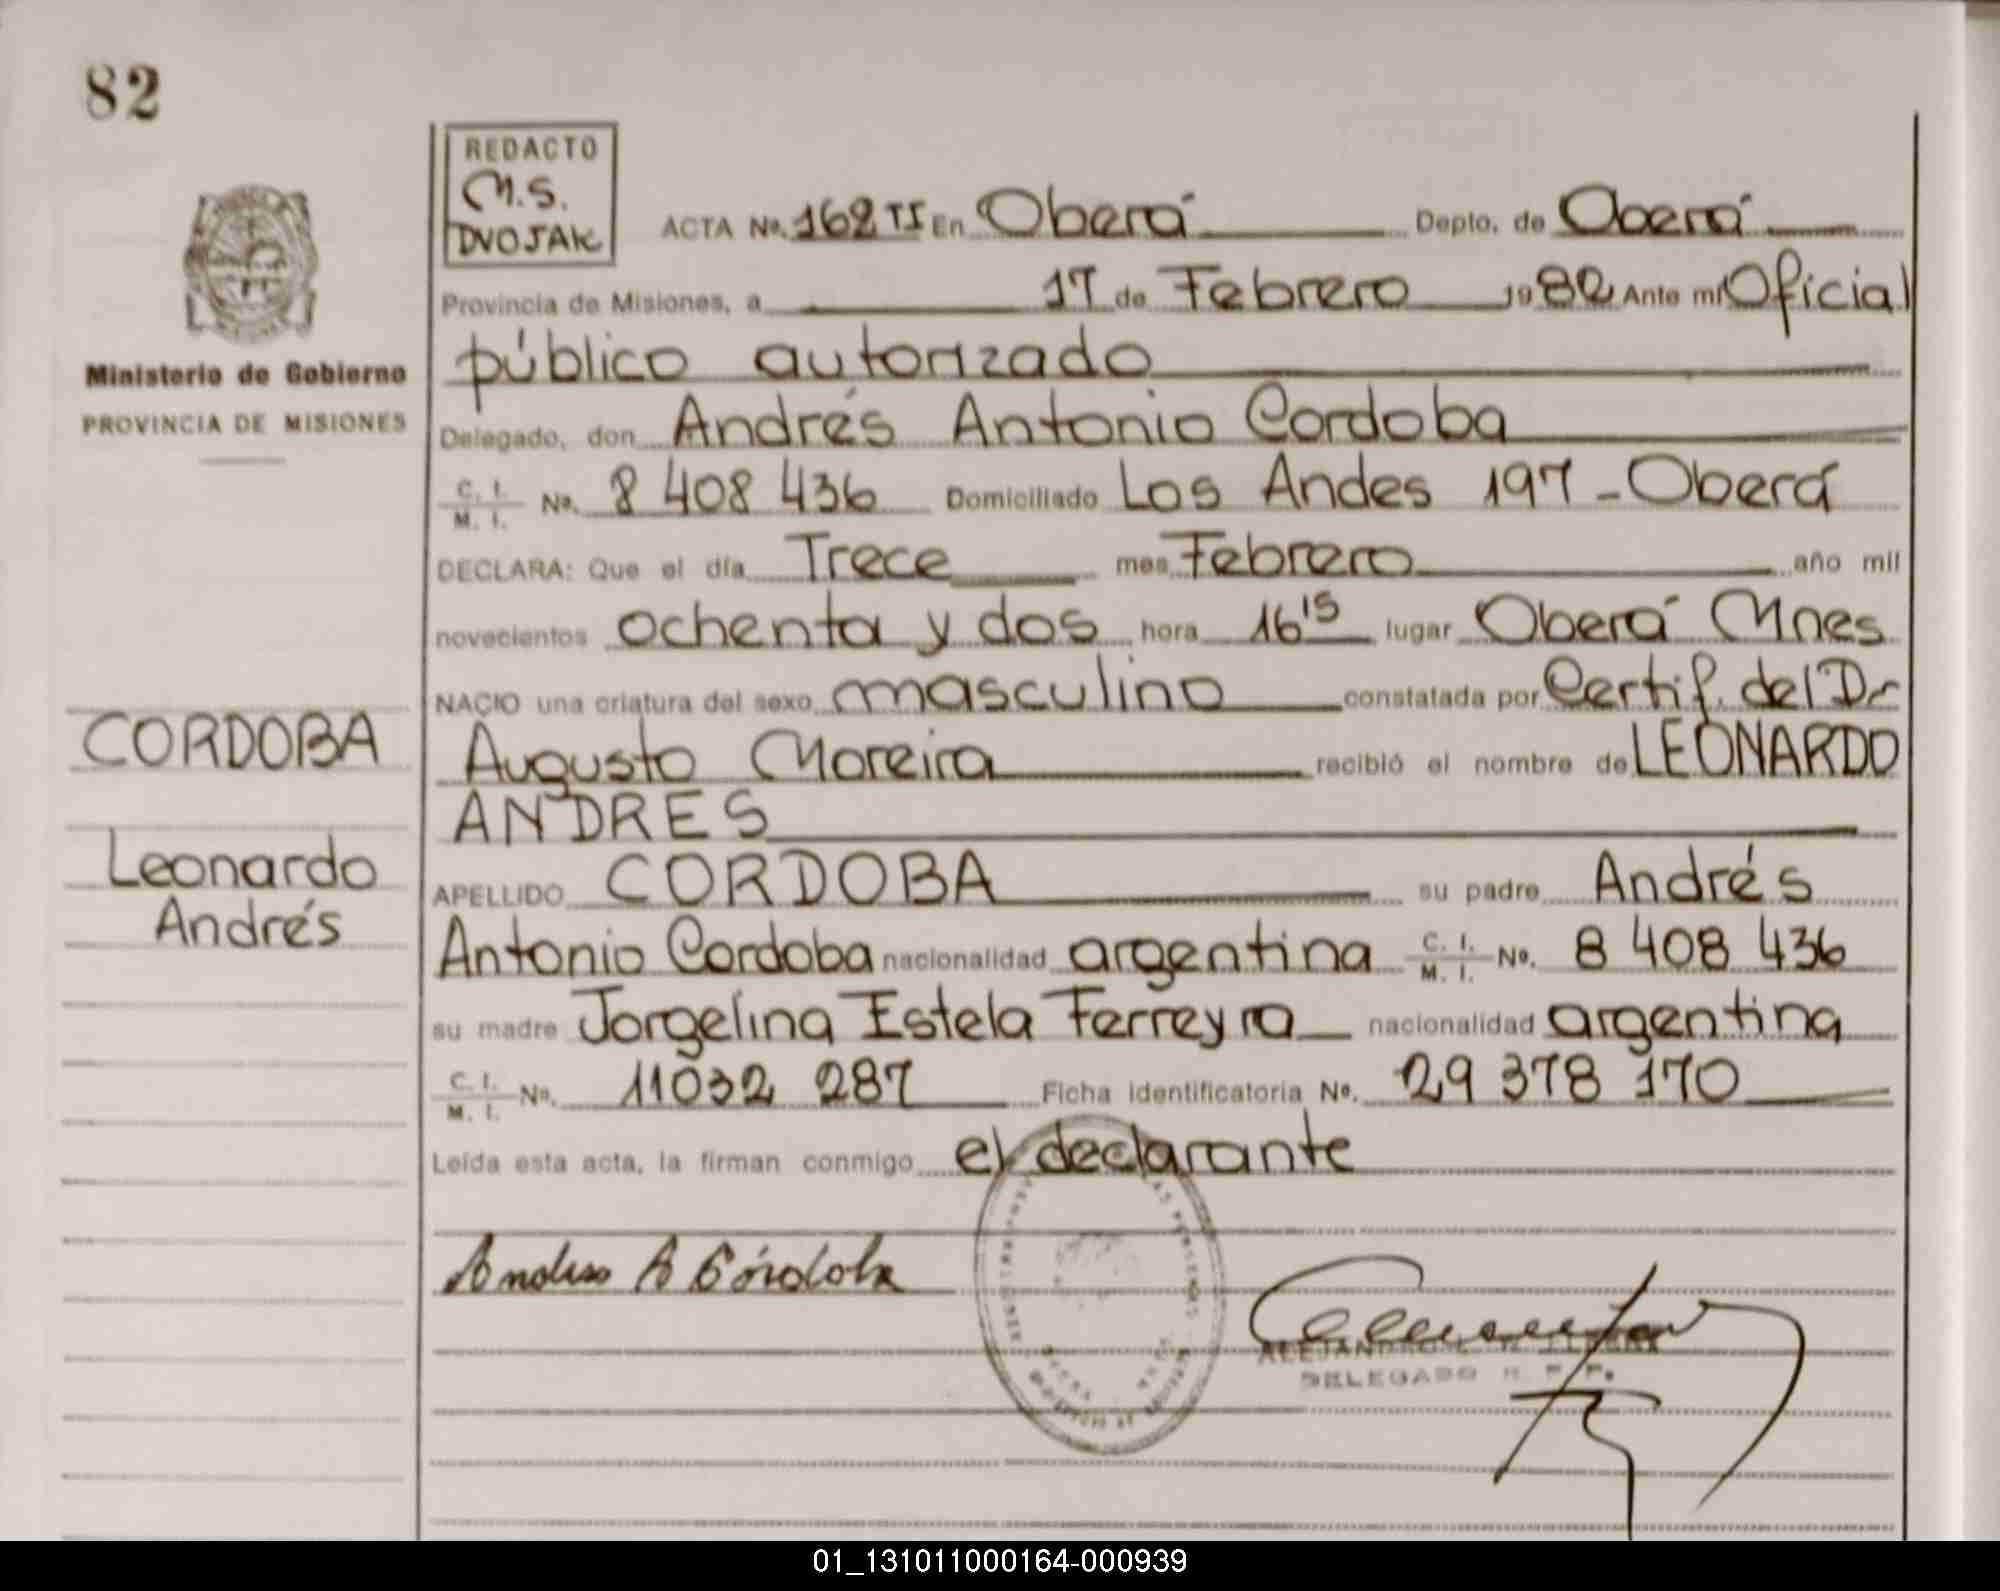 82
REDACTO
M.S.
DVOJAK
ACTA No. 162 TI En Oberá Depto. de Oberá
Provincia de Misiones, a 17 de Febrero 1982 Ante mi Oficial
Ministerio de Gobierno
PROVINCIA DE MISIONES
público autorizado
Delegado, don Andrés Antonio Cordoba
C. I. M. I. No. 8 408 436 Domiciliado Los Andes 197 - Oberá
DECLARA: Que el día Trece mes Febrero año mil
novecientos ochenta y dos hora 16 15 lugar Oberá Mnes
NACIO una criatura del sexo masculino constatada por Certif. del Dr
Augusto Moreira recibió el nombre de LEONARDO
ANDRES
CORDOBA
Leonardo
Andrés
APELLIDO CORDOBA su padre Andrés
Antonio Cordoba nacionalidad argentina C. I. M. I. No. 8 408 436
su madre Jorgelina Estela Ferreyra nacionalidad argentina
C. I. M. I. No. 11032 287 Ficha identificatoria No. 29 378 170
Leída esta acta, la firman conmigo el declarante
Andres A Córdoba
DELEGADO
01_131011000164-000939